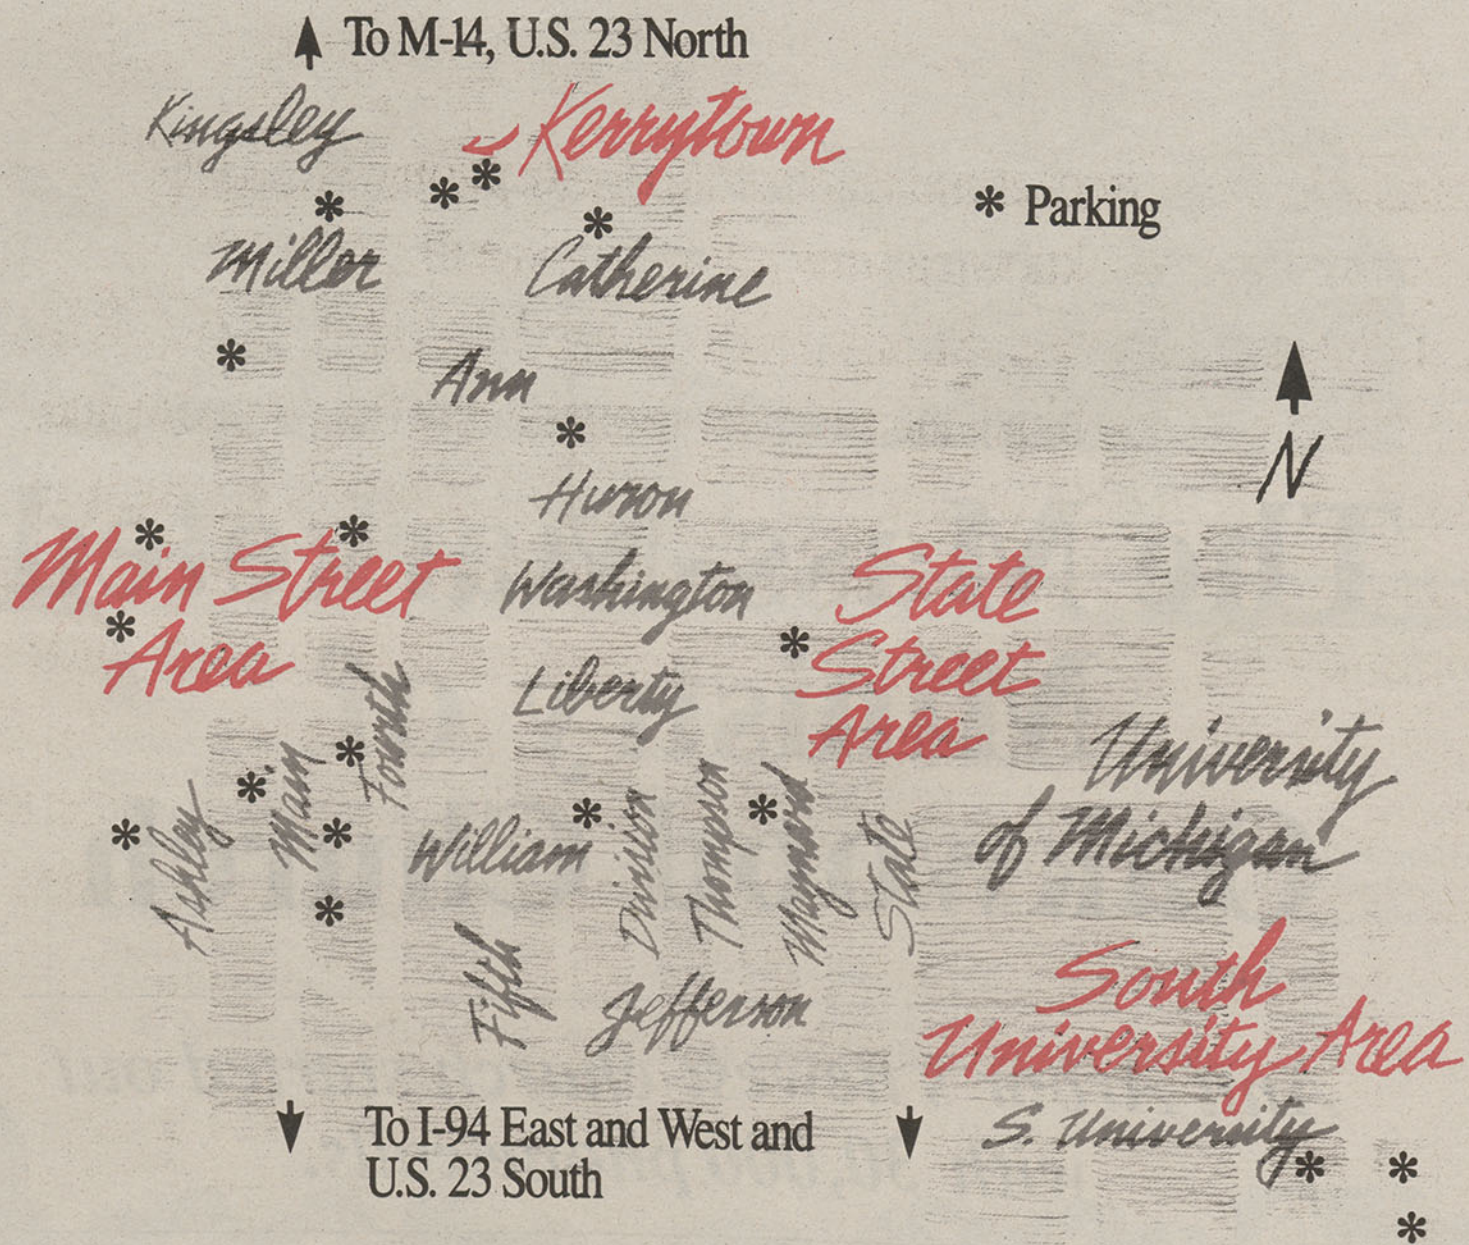 To M-14, U.S. 23 North
Kingsley
Kerrytown
* Parking
Miller
Catherine
Ann
N
Huron
Main Street
Area
Washington
State
Street
Area
Liberty
Fourth
Main
Ashley
University
of Michigan
William
Division
Thompson
Maynard
State
Fifth
Jefferson
South
University Area
S. University
To I-94 East and West and
U.S. 23 South